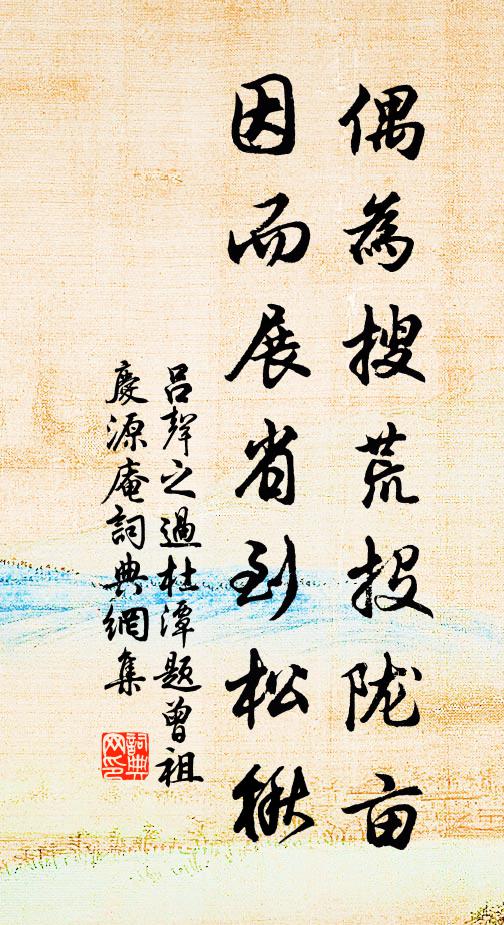 偶為搜荒投陇亩
因而展省到松楸
吕聲之過杜潭題曾祖
慶源庵詞典網集
詞典网印